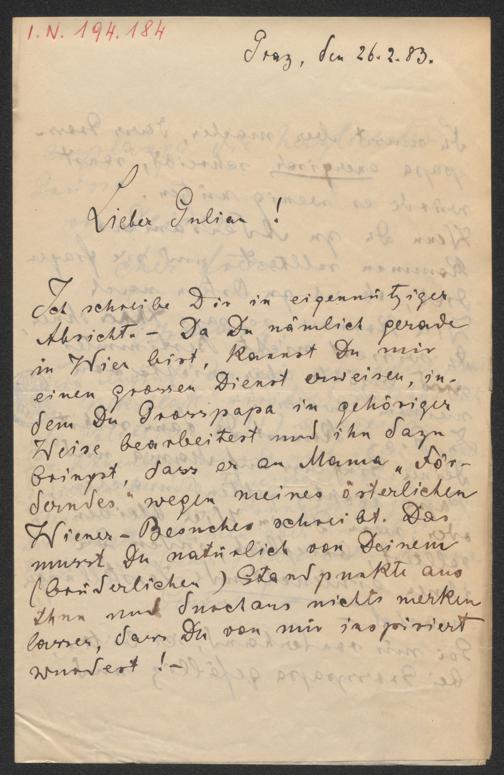 I.N. 194.184
Graz, den 26.2.83.
Lieber Julian !
Ich schreibe Dir in eigennütziger
Absicht. – Da Du nämlich gerade
in Wien bist, kannst Du mir
einen grossen Dienst erweisen, in-
dem Du Grosspapa in gehöriger
Weise bearbeitest und ihn dazu
bringst dass er an Mama „För-
derndes" wegen meines österlichen
Wiener-Besuches schreibt. Das
musst Du natürlich von Deinem
(brüderlichen) Standpunkte aus
thun und durchaus nichts merken
lassen, dass Du von mir inspiriert
wurdest ! –